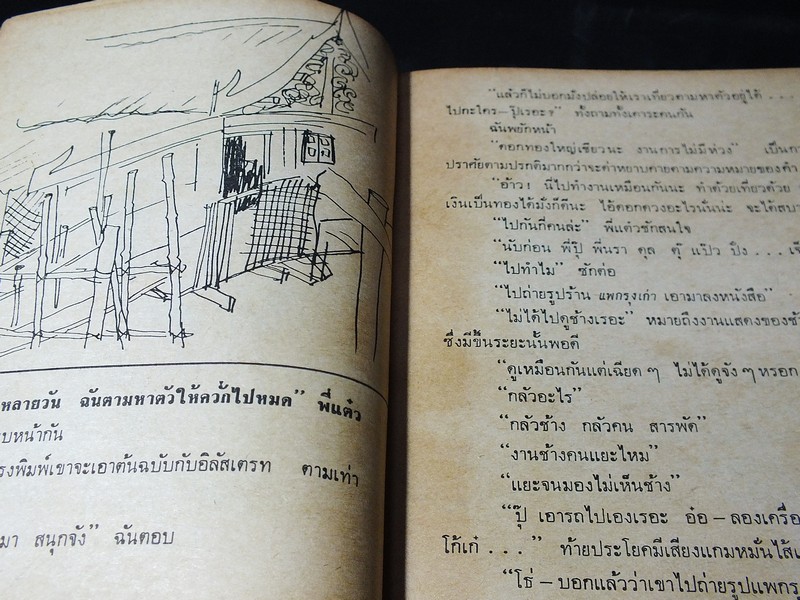 หลายวัน ฉันตามหาตัวให้ควั่กไปหมด” พี่แต๋ว
บหน้ากัน
รงพิมพ์เขาจะเอาต้นฉบับกับอิลัสเตรท ตามเท่า
มา สนุกจัง” ฉันตอบ
“แล้วก็ไม่บอกมั่งปล่อยให้เราเที่ยวตามหาตัวอยู่ได้ . . .
ไปกะใคร–รุ๊ปเรอะ?” ทั้งถามทั้งเดาระคนกัน
ฉันพยักหน้า
“ดอกทองใหญ่เชียวนะ งานการไม่มีห่วง” เป็นกา
ปราศัยตามปรกติมากกว่าจะด่าหยาบคายตามความหมายของคำ
“อ้าว! นี่ไปทำงานเหมือนกันนะ ทำด้วยเที่ยวด้วย
เงินเป็นทองได้มั่งก็ดีนะ ไอ้ดอกดวงอะไรนั่นน่ะ จะได้สบา
“ไปกันกี่คนล่ะ” พี่แต๋วซักสนใจ
“นับก่อน พี่ปุ๊ พี่นรา ดุล ตุ๊ แป๊ว ปิง . . . เจ็
“ไปทำไม” ซักต่อ
“ไปถ่ายรูปร้าน แพกรุงเก่า เอามาลงหนังสือ”
“ไม่ได้ไปดูช้างเรอะ” หมายถึงงานแสดงของช้
ซึ่งมีขึ้นระยะนั้นพอดี
“ดูเหมือนกันแต่เฉียด ๆ ไม่ได้ดูจัง ๆ หรอก
“กลัวอะไร”
“กลัวช้าง กลัวคน สารพัด”
“งานช้างคนแยะไหม”
“แยะจนมองไม่เห็นช้าง”
“ปุ๊ เอารถไปเองเรอะ อ๋อ – ลองเครื่อ
โก้เก๋ . . .” ท้ายประโยคมีเสียงแกมหมั่นไส้เ
“โธ่ – บอกแล้วว่าเขาไปถ่ายรูปแพกรุ